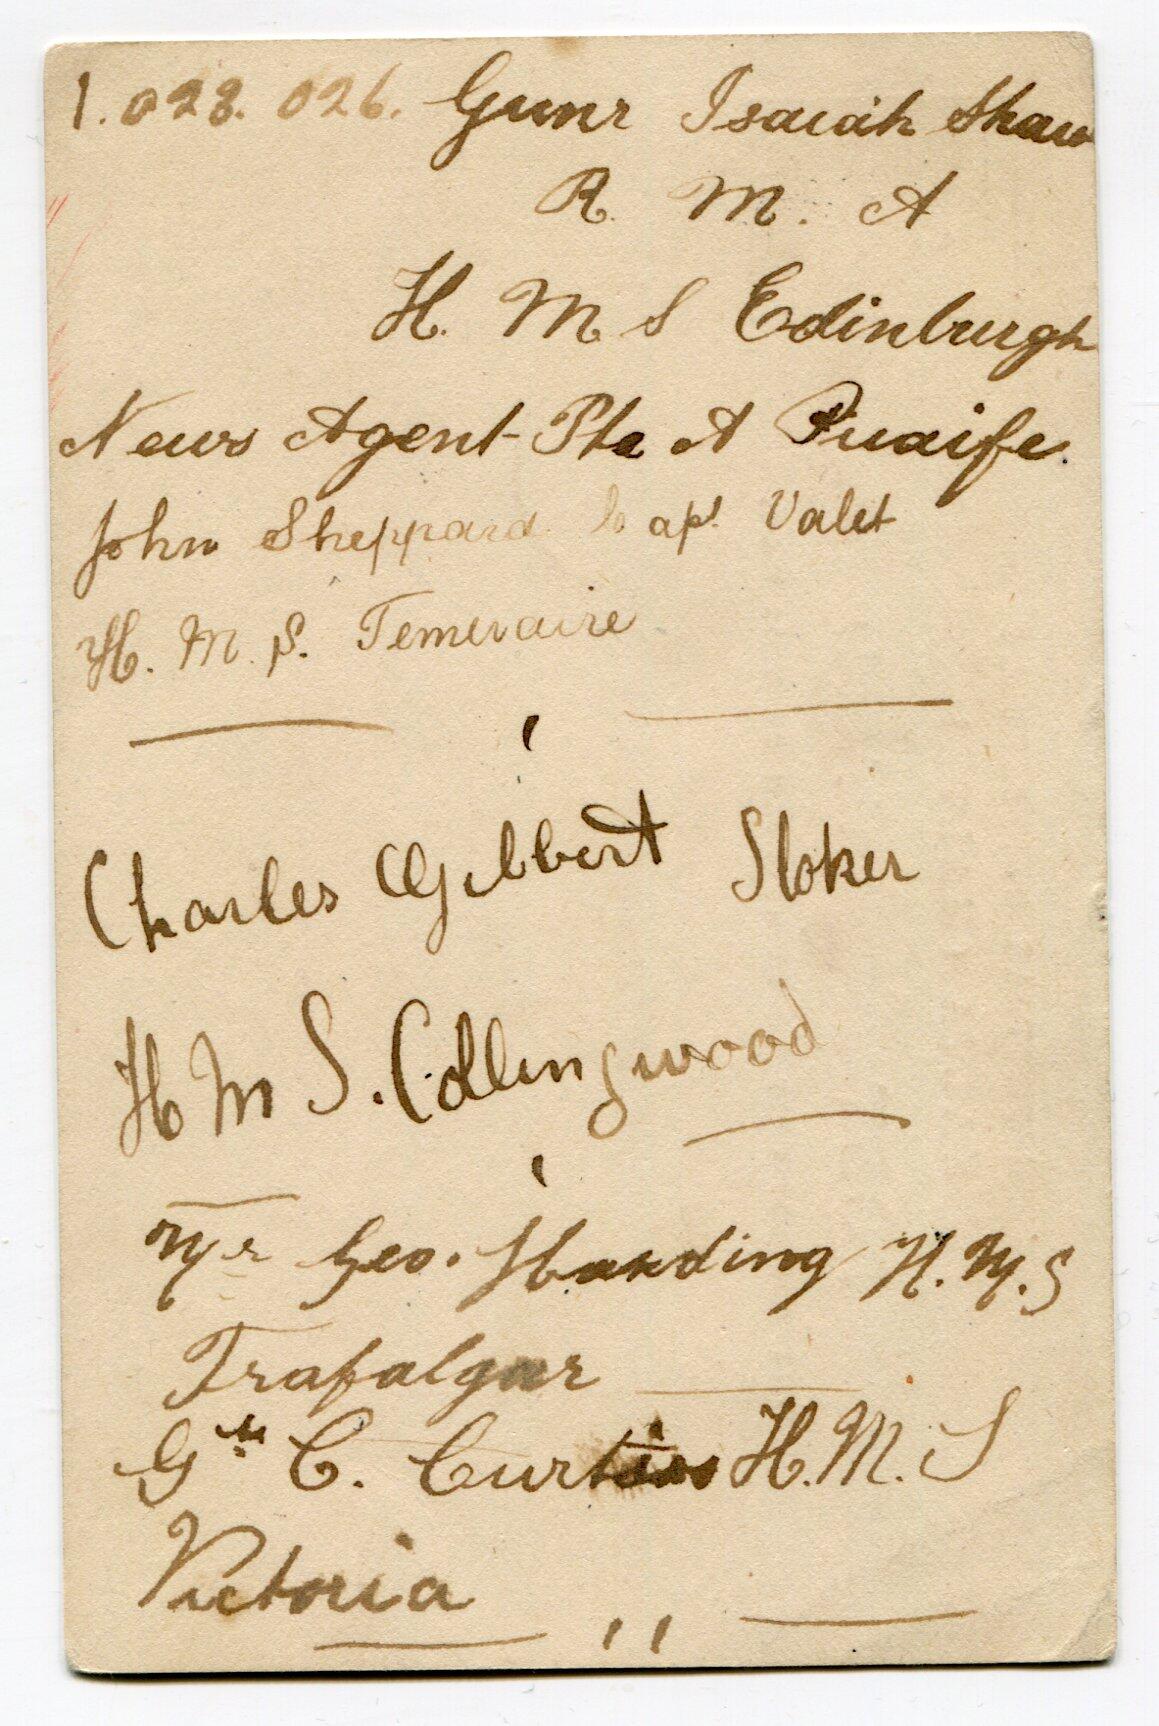 1.023.026. Gunr Isaiah Shaw
R. M. A
H. M S Edinburgh
News Agent Pte A Puaife.
John Sheppard Capt Valet
H. M. S. Temeraire
Charles Gilbert Stoker
H M S. Collingwood
Mr Geo. Harding H.M.S
Trafalgar
Gnr C. Curtiss H.M.S
Victoria